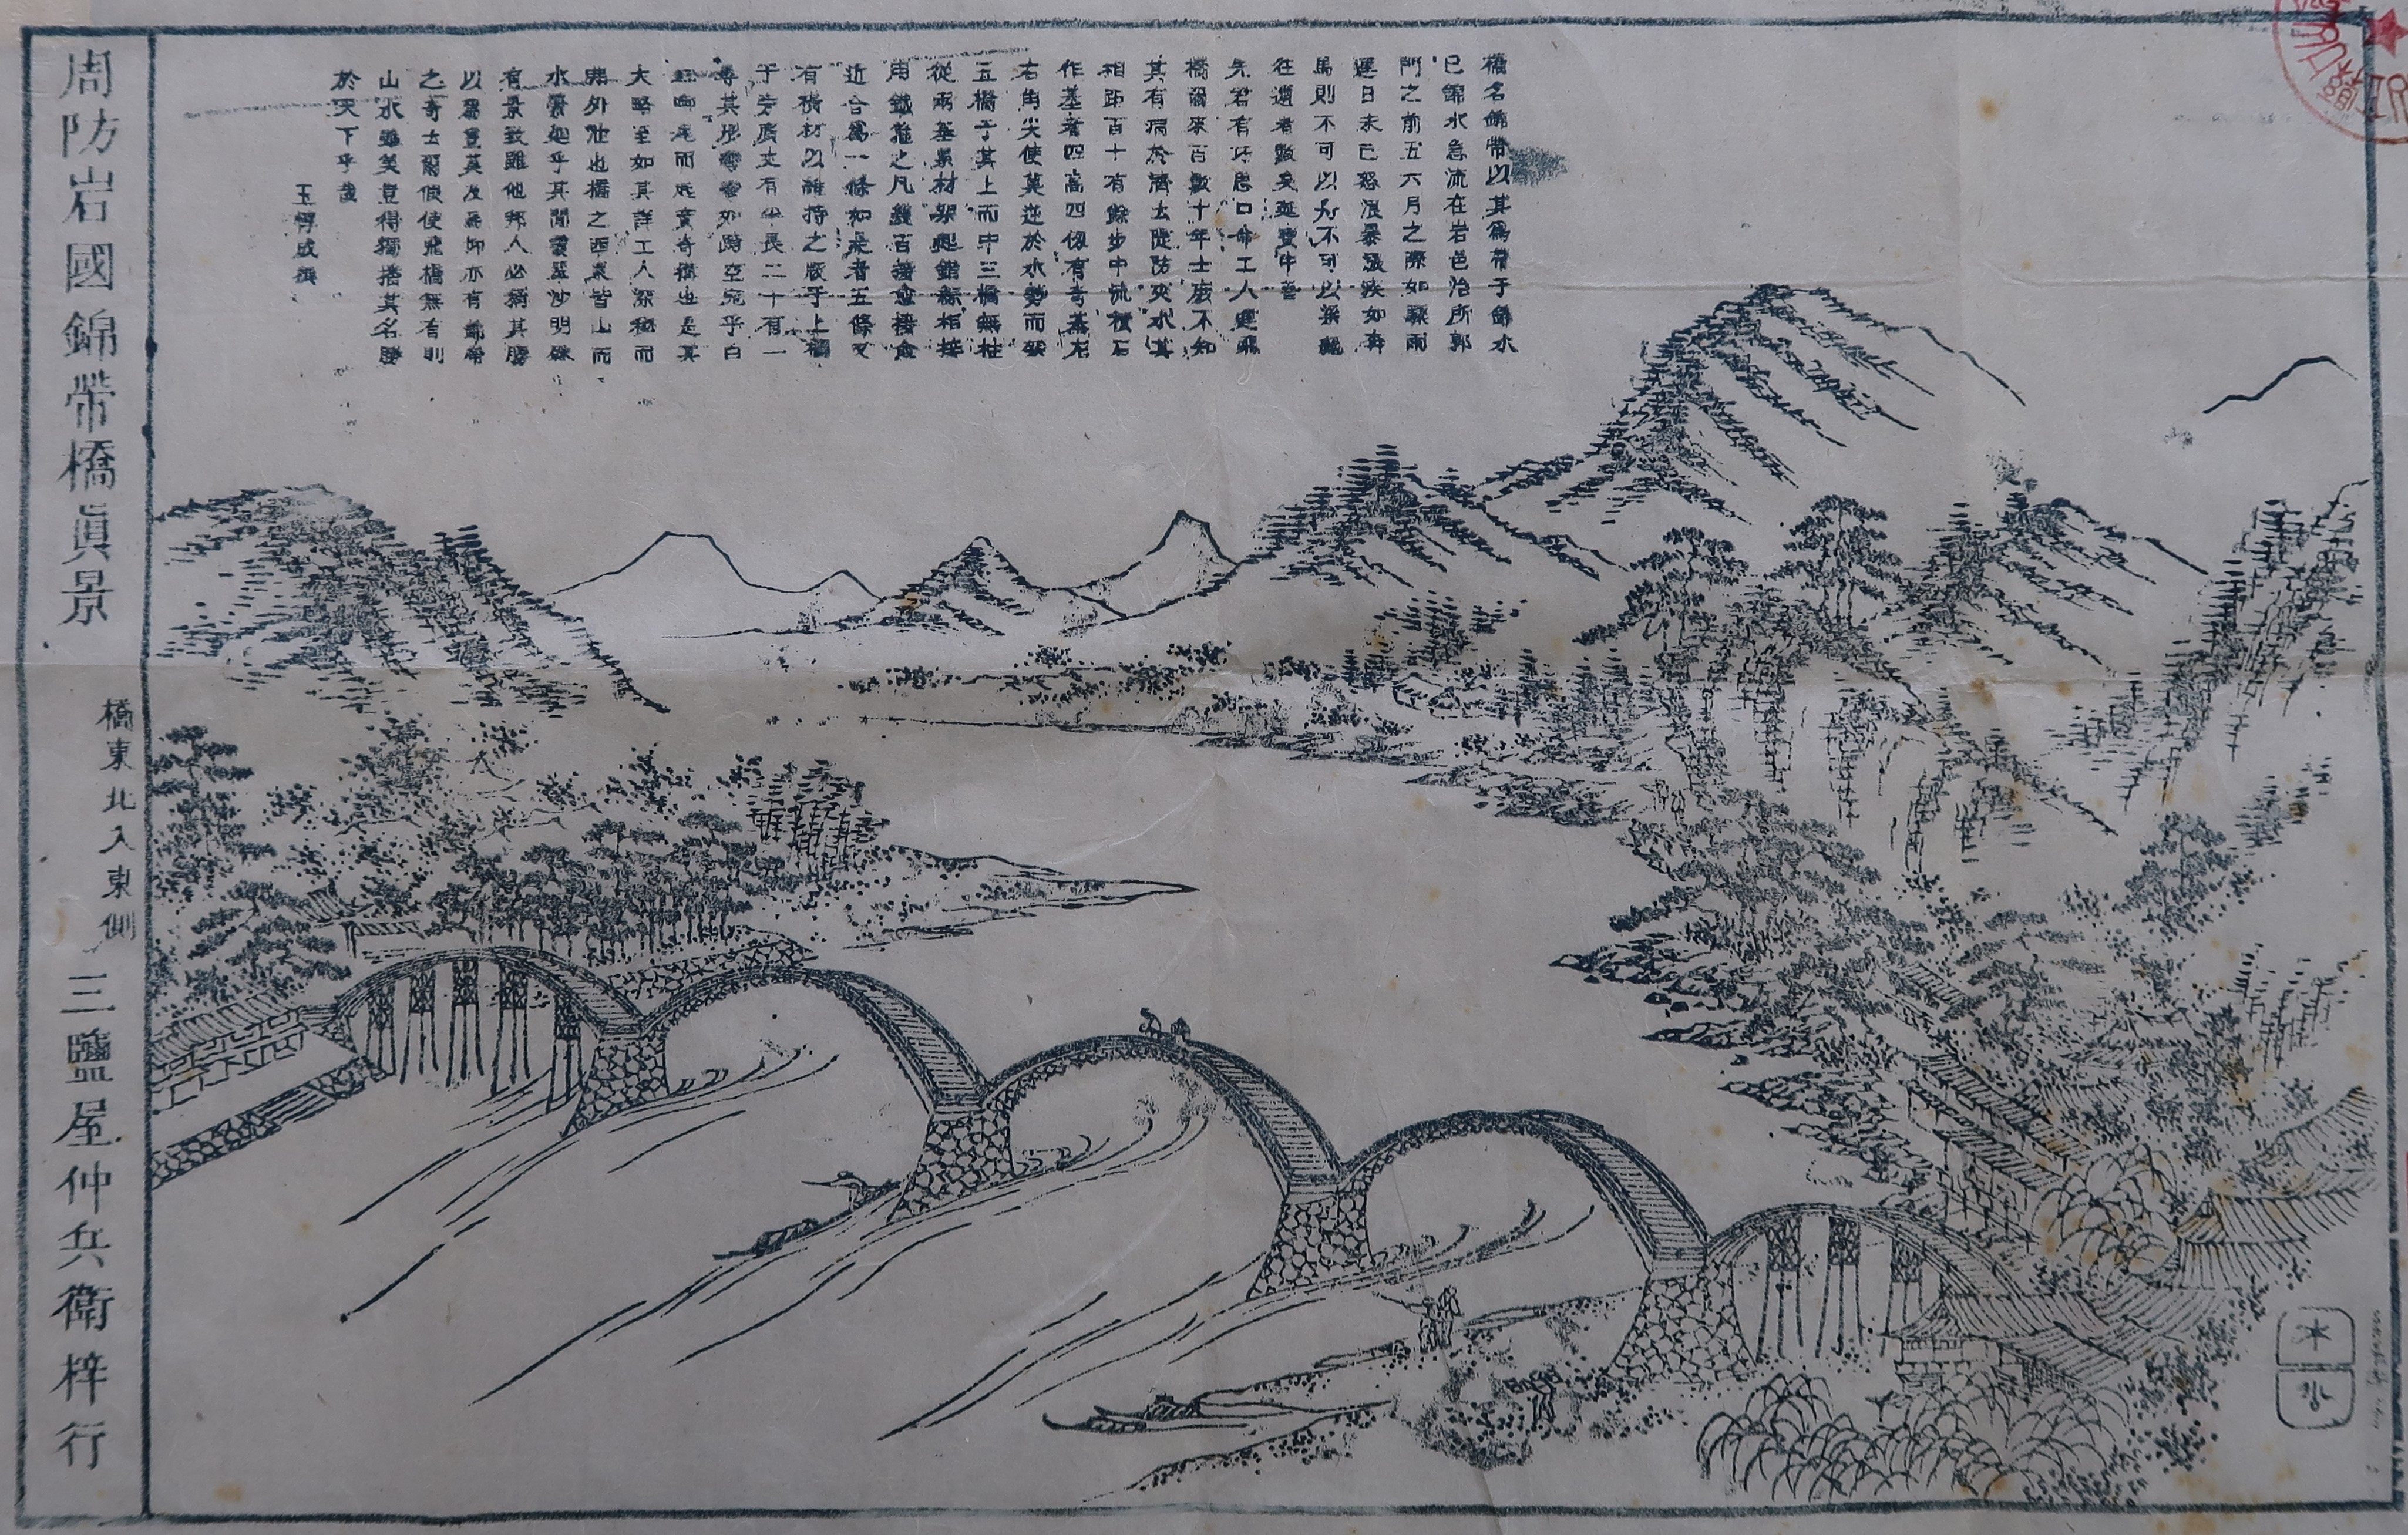 橋名錦帶以其爲帶于錦水
已錦水急流在岩邑治所郭
門之前五六月之際如驟雨
連日未已怒浪暴漲疾如奔
馬則不可以舟不可以梁艱
往還者數矣延寶中吾
先君有所思口命工人建飛
橋爾來百數十年士庶不知
其有病於濟去隄防夾水其
相距百十有餘步中流積石
作基者四高四仞有奇基左
右角尖使莫逆於水勢而架
五橋于其上而中三橋無柱
從兩基累材架起錯綜相
用鐵之凡百愈愈
近合爲一條如是者五條又
有橫材以維持之版于上欄
于旁廣丈有半長二十有一
尋其形彎彎如跨空宛乎白
尾而起實奇構也是其
大略至如其詳工人深秘而
弗外泄也橋之西裏皆山而
水縈廻乎其間翠沙明殊
有景致雖他邦人必稱其勝
以爲莫及焉抑亦有錦帶
之奇爾使飛橋無有則
山水雖美豈得獨擅其名勝
於天下乎哉
玉惇成撰
周防岩國錦帶橋眞景
橋東北入東側
三鹽屋仲兵衞梓行